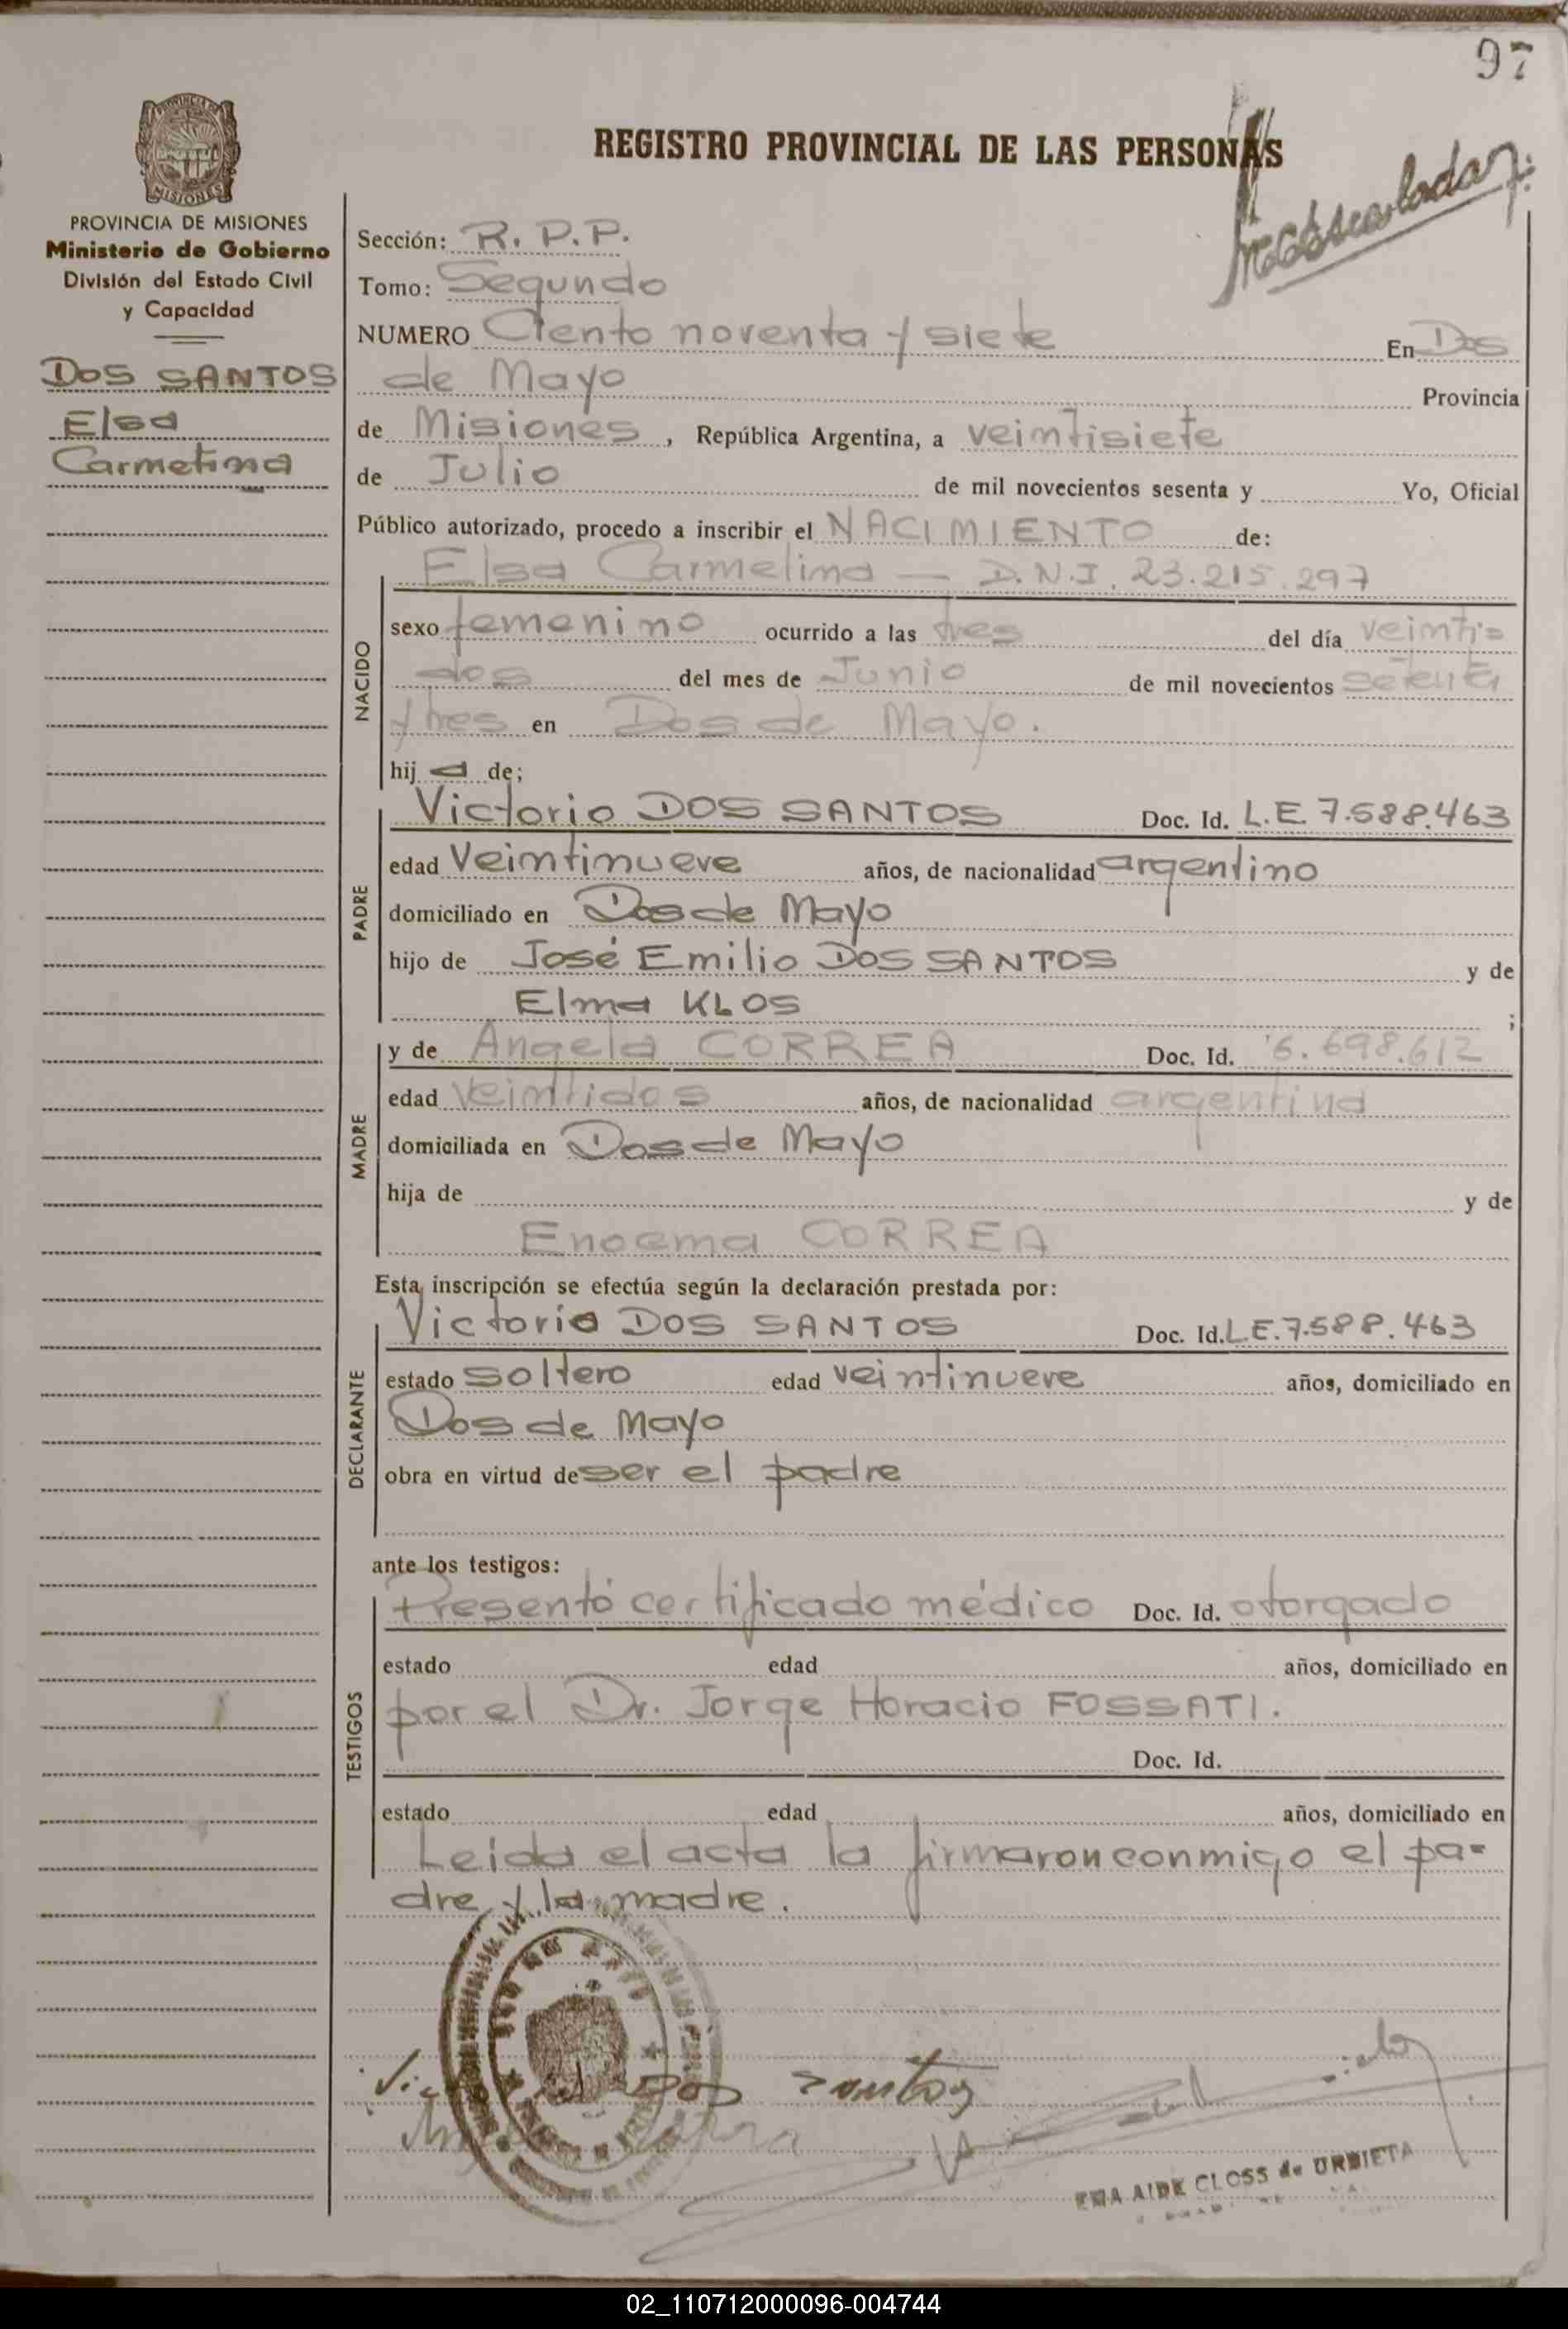 97
REGISTRO PROVINCIAL DE LAS PERSONAS
MISIONES
PROVINCIA DE MISIONES
Ministerio de Gobierno
División del Estado Civil
y Capacidad
DOS SANTOS
Elsa
Carmelina
Sección: R. P. P.
Tomo: Segundo
NUMERO Ciento noventa y siete En Dos
de Mayo Provincia
de Misiones, República Argentina, a veintisiete
de Julio de mil novecientos sesenta y Yo, Oficial
Público autorizado, procedo a inscribir el NACIMIENTO de:
NACIDO
Elsa Carmelina — D.N.I. 23.215.297
sexo femenino ocurrido a las tres del día veinti=
dos del mes de Junio de mil novecientos setenta
y tres en Dos de Mayo.
hij a de;
PADRE
Victorio DOS SANTOS Doc. Id. L.E. 7.588.463
edad Veintinueve años, de nacionalidad argentino
domiciliado en Dos de Mayo
hijo de José Emilio DOS SANTOS y de
Elma KLOS ;
MADRE
y de Angela CORREA Doc. Id. 6.698.612
edad veintidos años, de nacionalidad argentina
domiciliada en Dos de Mayo
hija de y de
Enoema CORREA
Esta inscripción se efectúa según la declaración prestada por:
DECLARANTE
Victorio DOS SANTOS Doc. Id. L.E. 7.588.463
estado soltero edad veintinueve años, domiciliado en
Dos de Mayo
obra en virtud de ser el padre
ante los testigos:
TESTIGOS
Presentó certificado médico Doc. Id. otorgado
estado edad años, domiciliado en
por el Dr. Jorge Horacio FOSSATI.
Doc. Id.
estado edad años, domiciliado en
Leida el acta la firmaron conmigo el pa=
dre y la madre.
santos
AIDE CLOSS de URBIETA
02_110712000096-004744